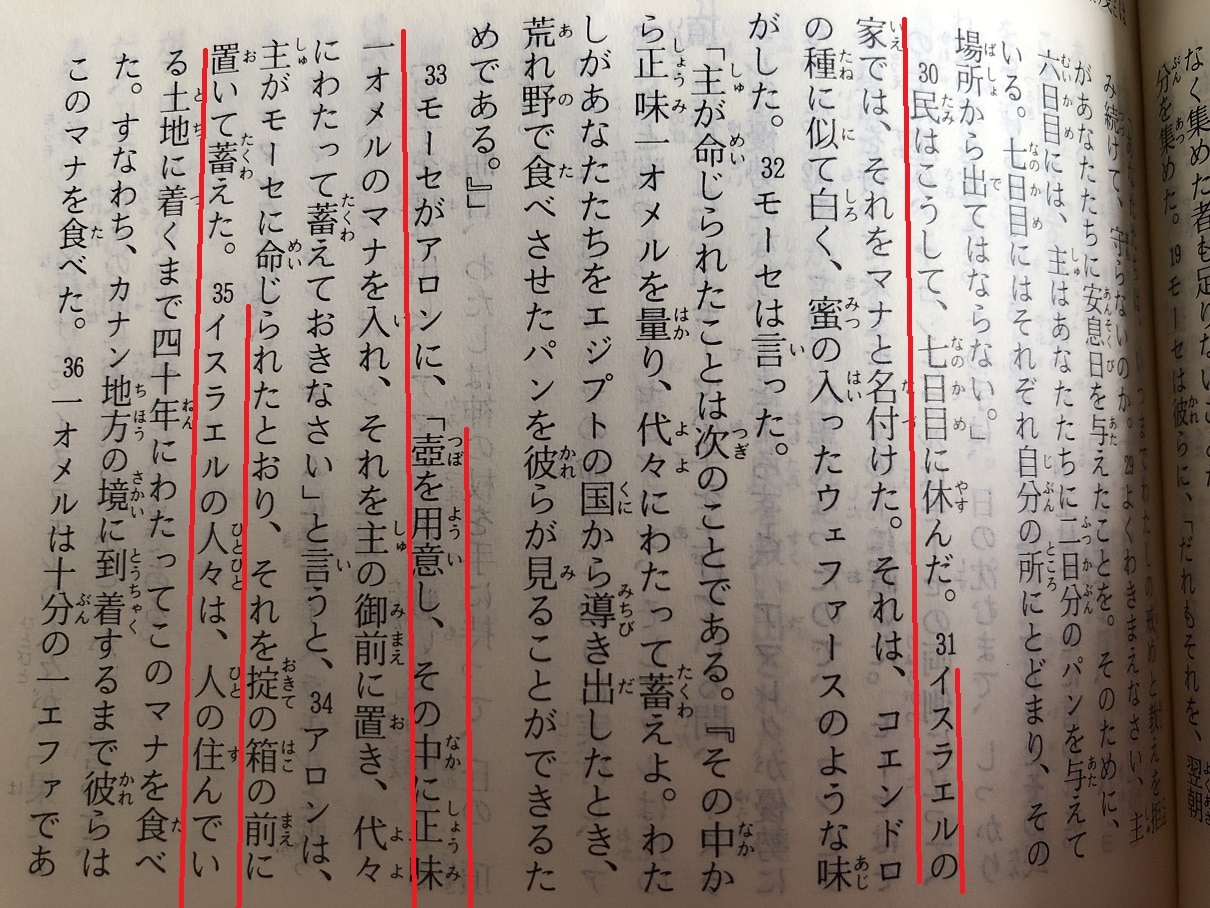 なく集めた者も足りないこ
分を集めた。19 モーセは彼らに、「だれもそれを、翌朝
み続けて、守らないのか。29 よくわきまえなさい、主
があなたたちに安息日を与えたことを。そのために、
六日目には、主はあなたたちに二日分のパンを与えて
いる。七日目にはそれぞれ自分の所にとどまり、その
場所から出てはならない。」
30 民はこうして、七日目に休んだ。31 イスラエルの
家では、それをマナと名付けた。それは、コエンドロ
の種に似て白く、蜜の入ったウェファースのような味
がした。32 モーセは言った。
「主が命じられたことは次のことである。『その中か
ら正味一オメルを量り、代々にわたって蓄えよ。わた
しがあなたたちをエジプトの国から導き出したとき、
荒れ野で食べさせたパンを彼らが見ることができるた
めである。』」
33 モーセがアロンに、「壺を用意し、その中に正味
一オメルのマナを入れ、それを主の御前に置き、代々
にわたって蓄えておきなさい」と言うと、34 アロンは、
主がモーセに命じられたとおり、それを掟の箱の前に
置いて蓄えた。35 イスラエルの人々は、人の住んでい
る土地に着くまで四十年にわたってこのマナを食べ
た。すなわち、カナン地方の境に到着するまで彼らは
このマナを食べた。36 一オメルは十分の一エファであ